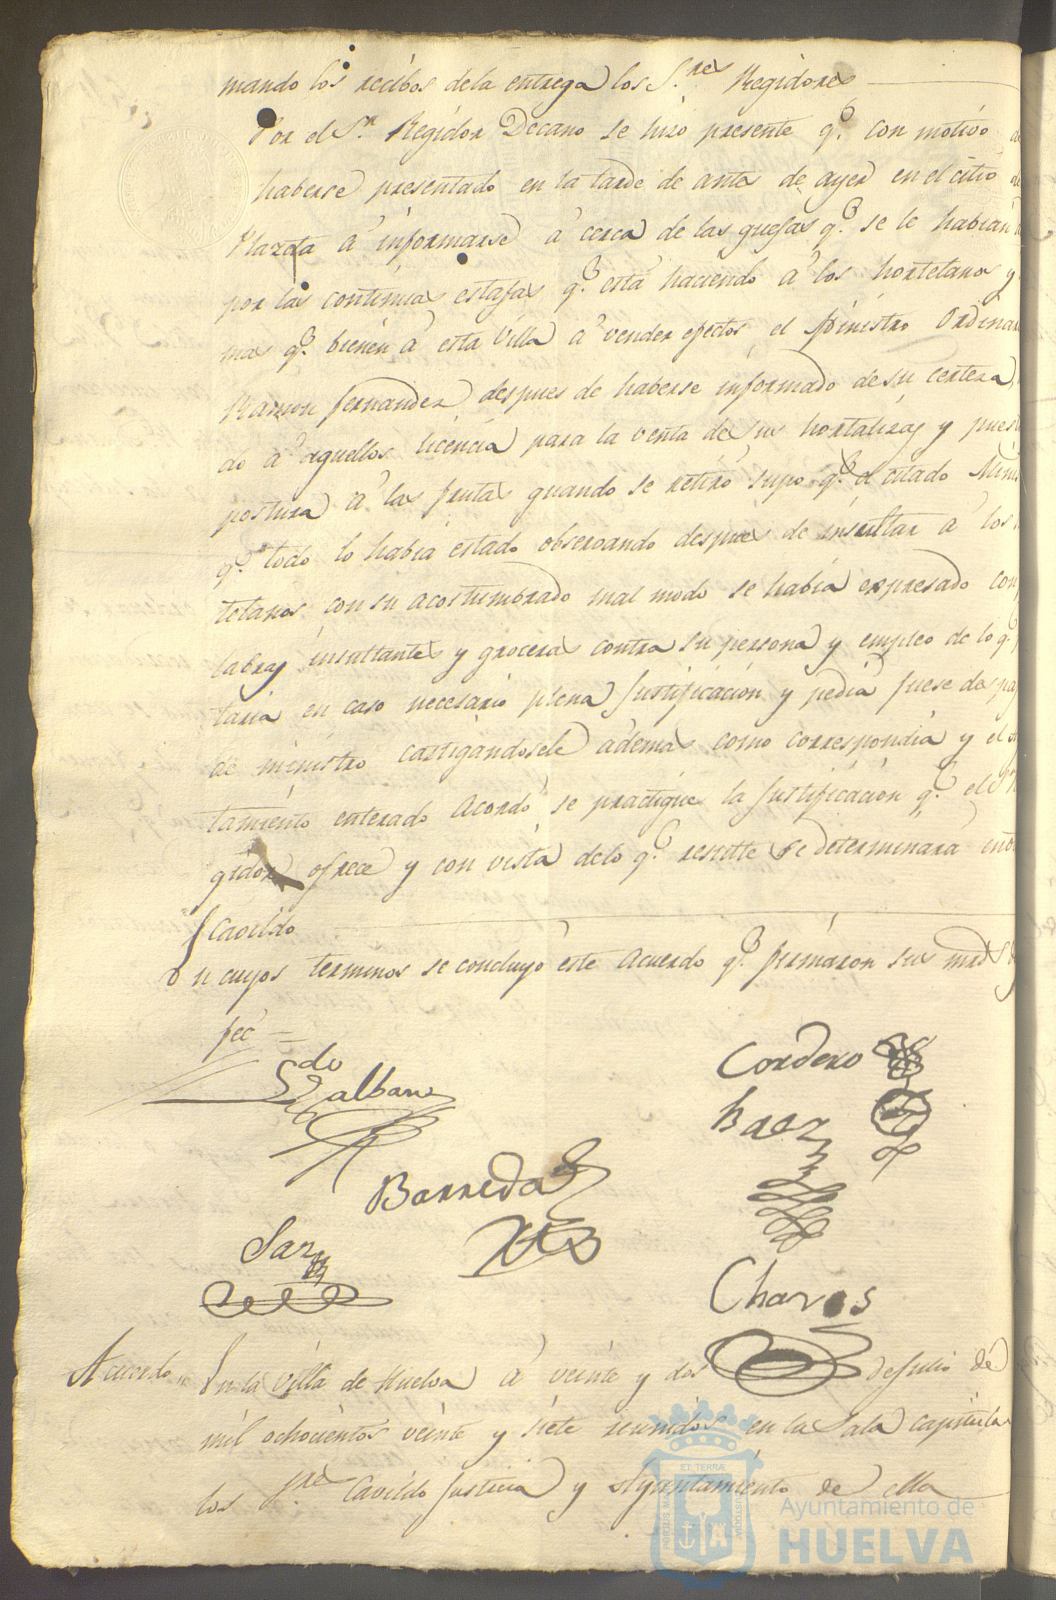 mando los recibos dela entrega los S.res Regidores
Por el S.r Regidor Decano se hizo presente q.e con motivo de
haberse presentado en la tarde de antes de ayer en el citio de
Plazeta á informarse á cerca de las quejas q.e se le habian
por las continuas estafas q.e está haciendo á los hortelanos y
mas q.e bienen á esta Villa á vender efectos el Ministro Ordinar
Ramon Fernandez, despues de haberse informado de su certeza,
do á aquellos licencia para la venta de sus hortalizas y pues
postura á las frutas quando se retiró supo q.e el citado Mini
q.e todo lo habia estado observando despues de insultar á los
telanos con su acostumbrado mal modo se habia expresado con
labras insultantes y groceras contra su persona y empleo de lo q.e
taria en caso necesario plena Justificacion y pedia fuese des
de ministro castigandosele ademas como correspondia y el
tamiento enterado Acordó se practique la Justificacion q.e el
gidor ofrece y con vista delo q.e resulte se determinara en
Cavildo
En cuyos terminos se concluyó este Acuerdo q.e firmaron sus mrds
feé =
Ldo Galban
Cordero
Baez
Barreda
Sanz
Charos
Acuerdo En la Villa de Huelva á veinte y dos de Julio de
mil ochocientos veinte y siete reunidos en la Sala capitula
los Sres Cavildo Justicia y Ayuntamiento de ella
PORTUS MARIS ET TERRAE CUSTODIA
Ayuntamiento de
HUELVA